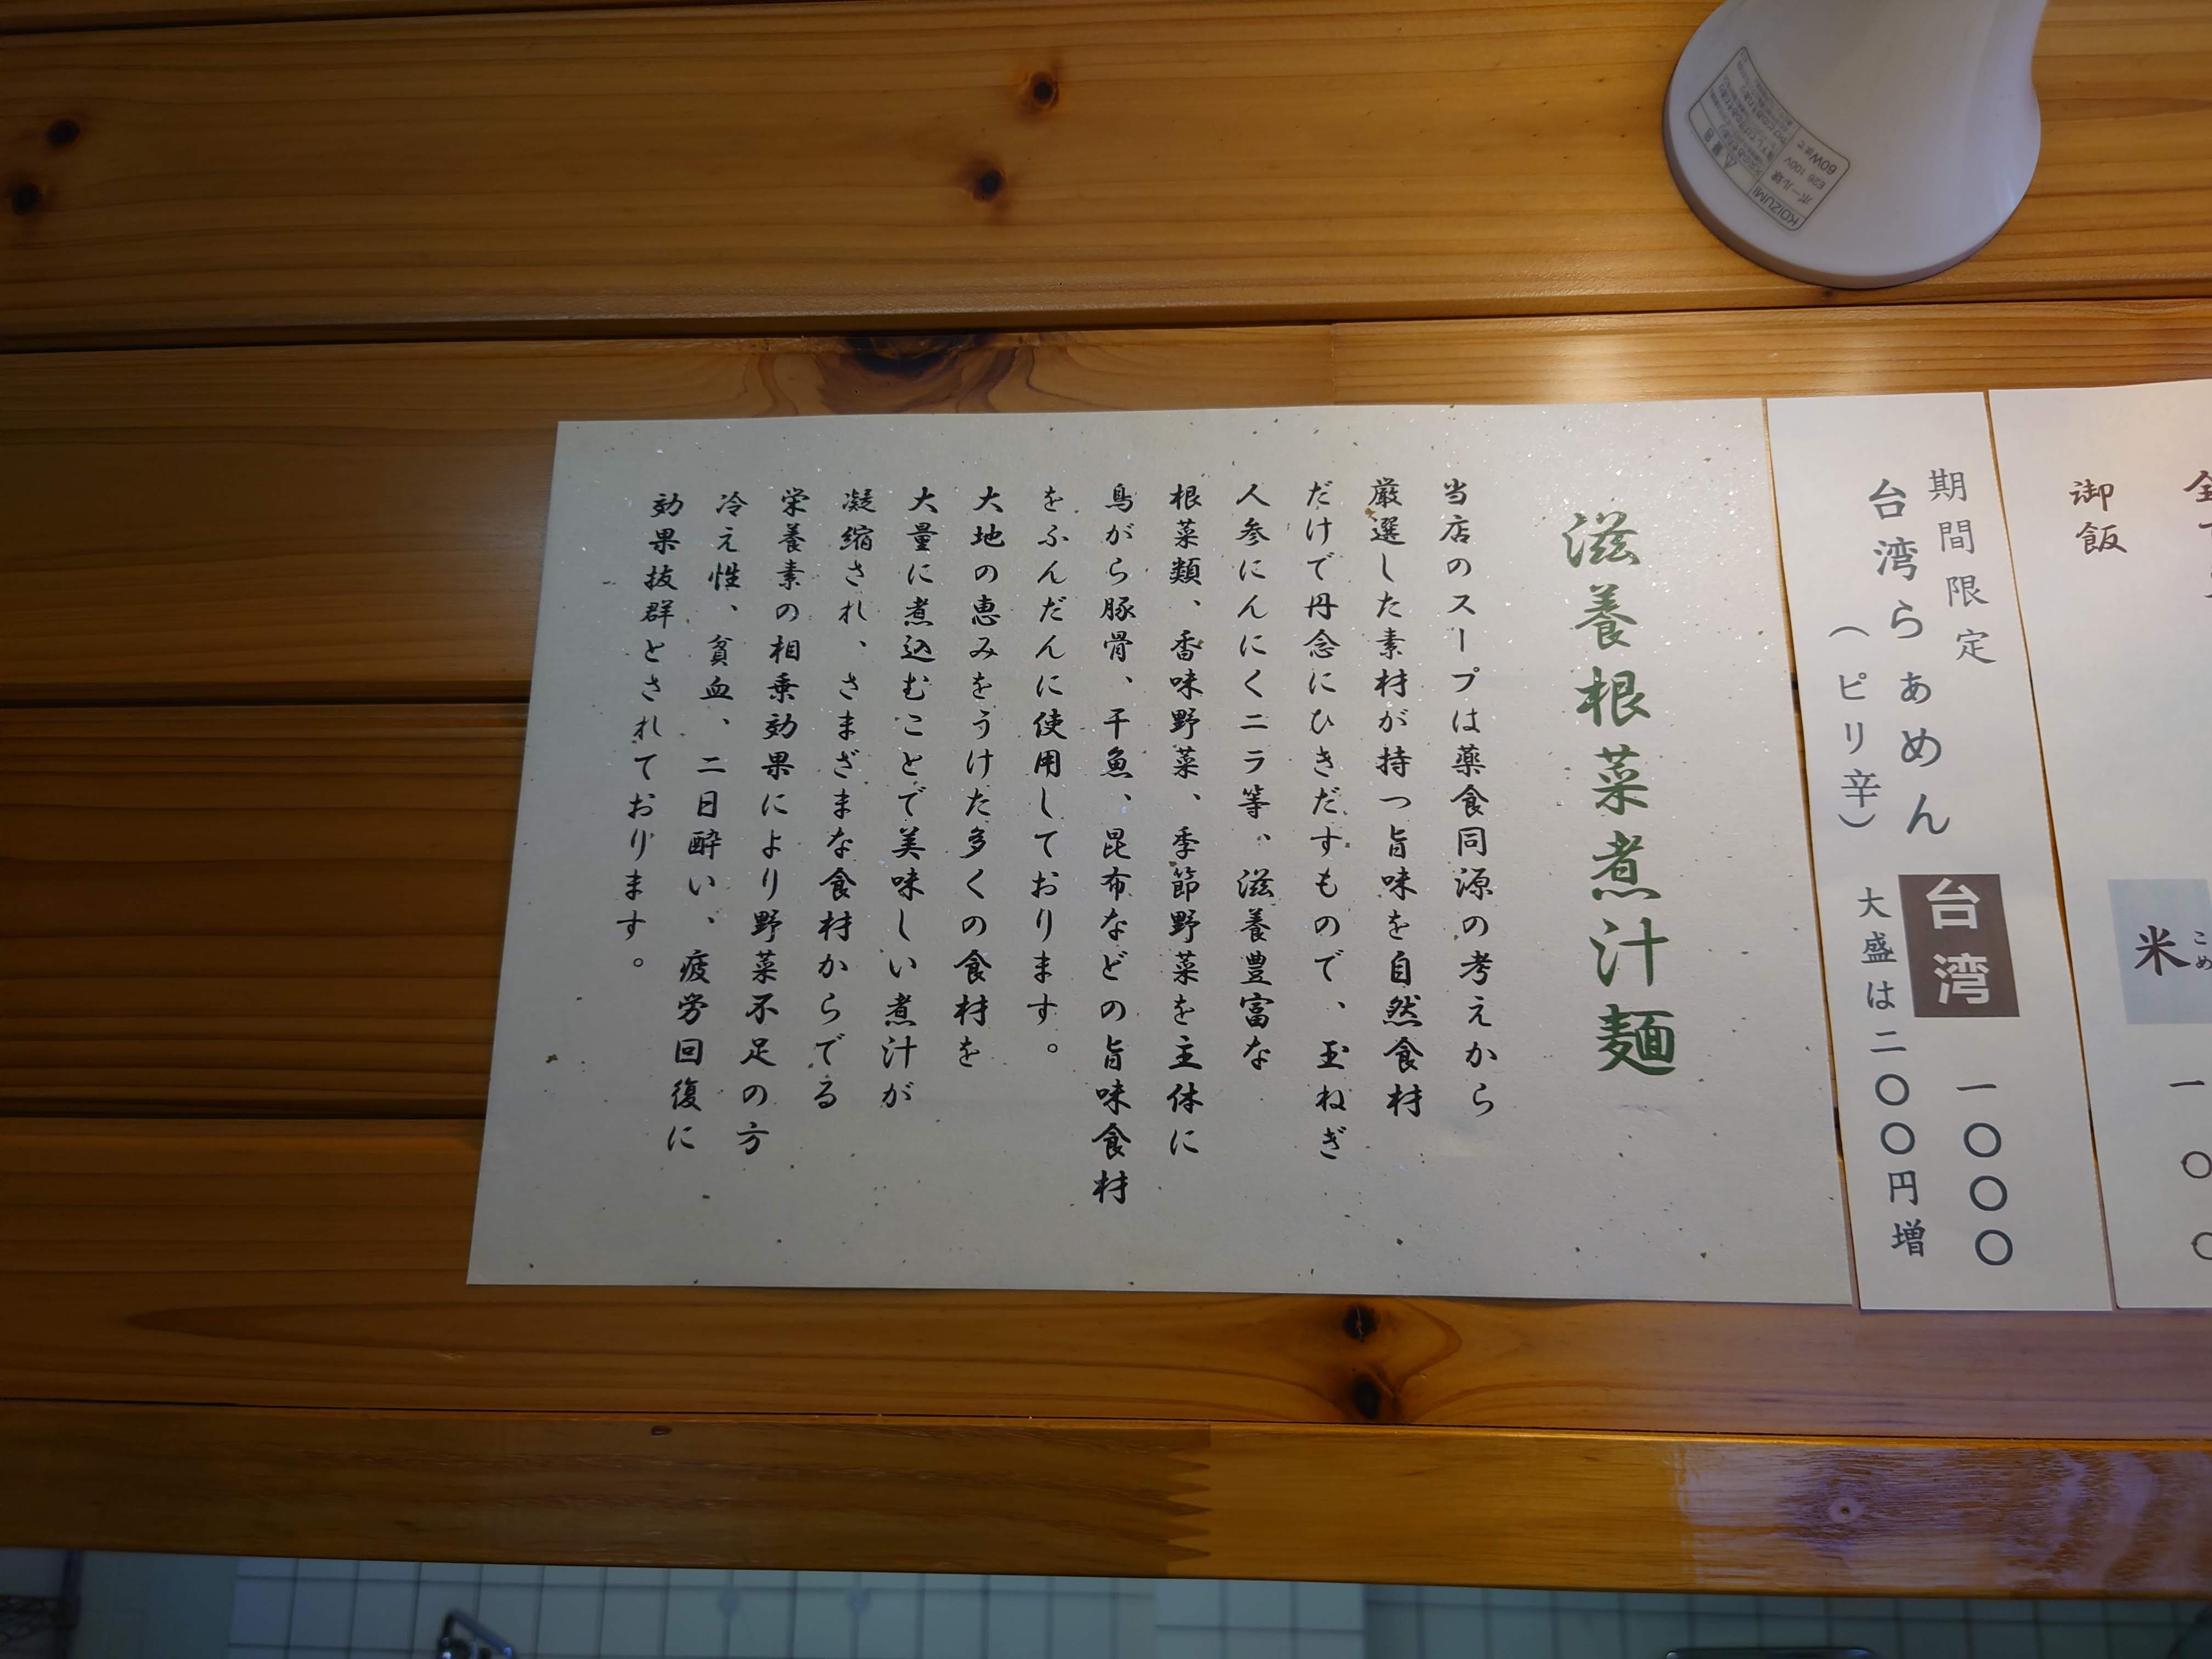 御飯
米
こめ
期間限定
台湾らぁめん
台湾
一〇〇〇
（ピリ辛）
大盛は二〇〇円増
滋養根菜煮汁麺
当店のスープは薬食同源の考えから
厳選した素材が持つ旨味を自然食材
だけで丹念にひきだすもので、玉ねぎ
人参にんにくニラ等、滋養豊富な
根菜類、香味野菜、季節野菜を主体に
鳥がら豚骨、干魚、昆布などの旨味食材
をふんだんに使用しております。
大地の恵みをうけた多くの食材を
大量に煮込むことで美味しい煮汁が
凝縮され、さまざまな食材からでる
栄養素の相乗効果により野菜不足の方
冷え性、貧血、二日酔い、疲労回復に
効果抜群とされております。
KOIZUMI
ボール球
E26 100V
60Wまで